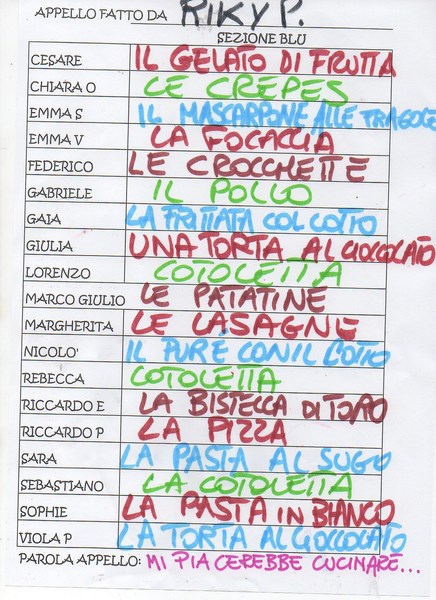 APPELLO FATTO DA RIKY P.
SEZIONE BLU
CESARE IL GELATO DI FRUTTA
CHIARA O LE CREPES
EMMA S IL MASCARPONE ALLE FRAGOLE
EMMA V LA FOCACCIA
FEDERICO LE CROCCHETTE
GABRIELE IL POLLO
GAIA LA FRITTATA COL COTTO
GIULIA UNA TORTA AL CIOCCOLATO
LORENZO COTOLETTA
MARCO GIULIO LE PATATINE
MARGHERITA LE LASAGNE
NICOLO' IL PURE CON IL COTTO
REBECCA COTOLETTA
RICCARDO E LA BISTECCA DI TORO
RICCARDO P LA PIZZA
SARA LA PASTA AL SUGO
SEBASTIANO LA COTOLETTA
SOPHIE LA PASTA IN BIANCO
VIOLA P LA TORTA AL CIOCCOLATO
PAROLA APPELLO: MI PIACEREBBE CUCINARE...